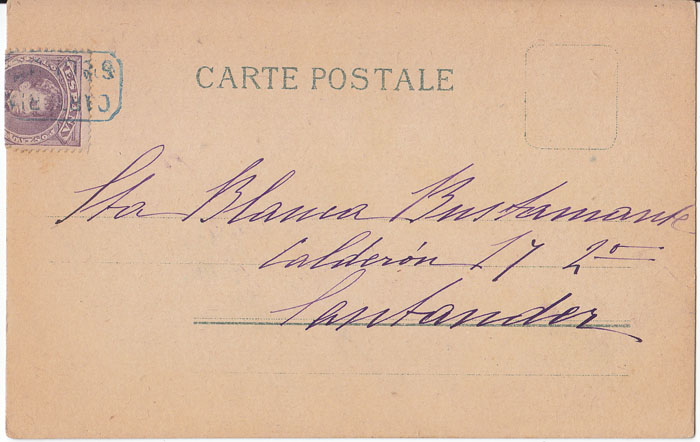 CARTE POSTALE
Sta Blanca Bustamante
Calderón 17 2º
Santander